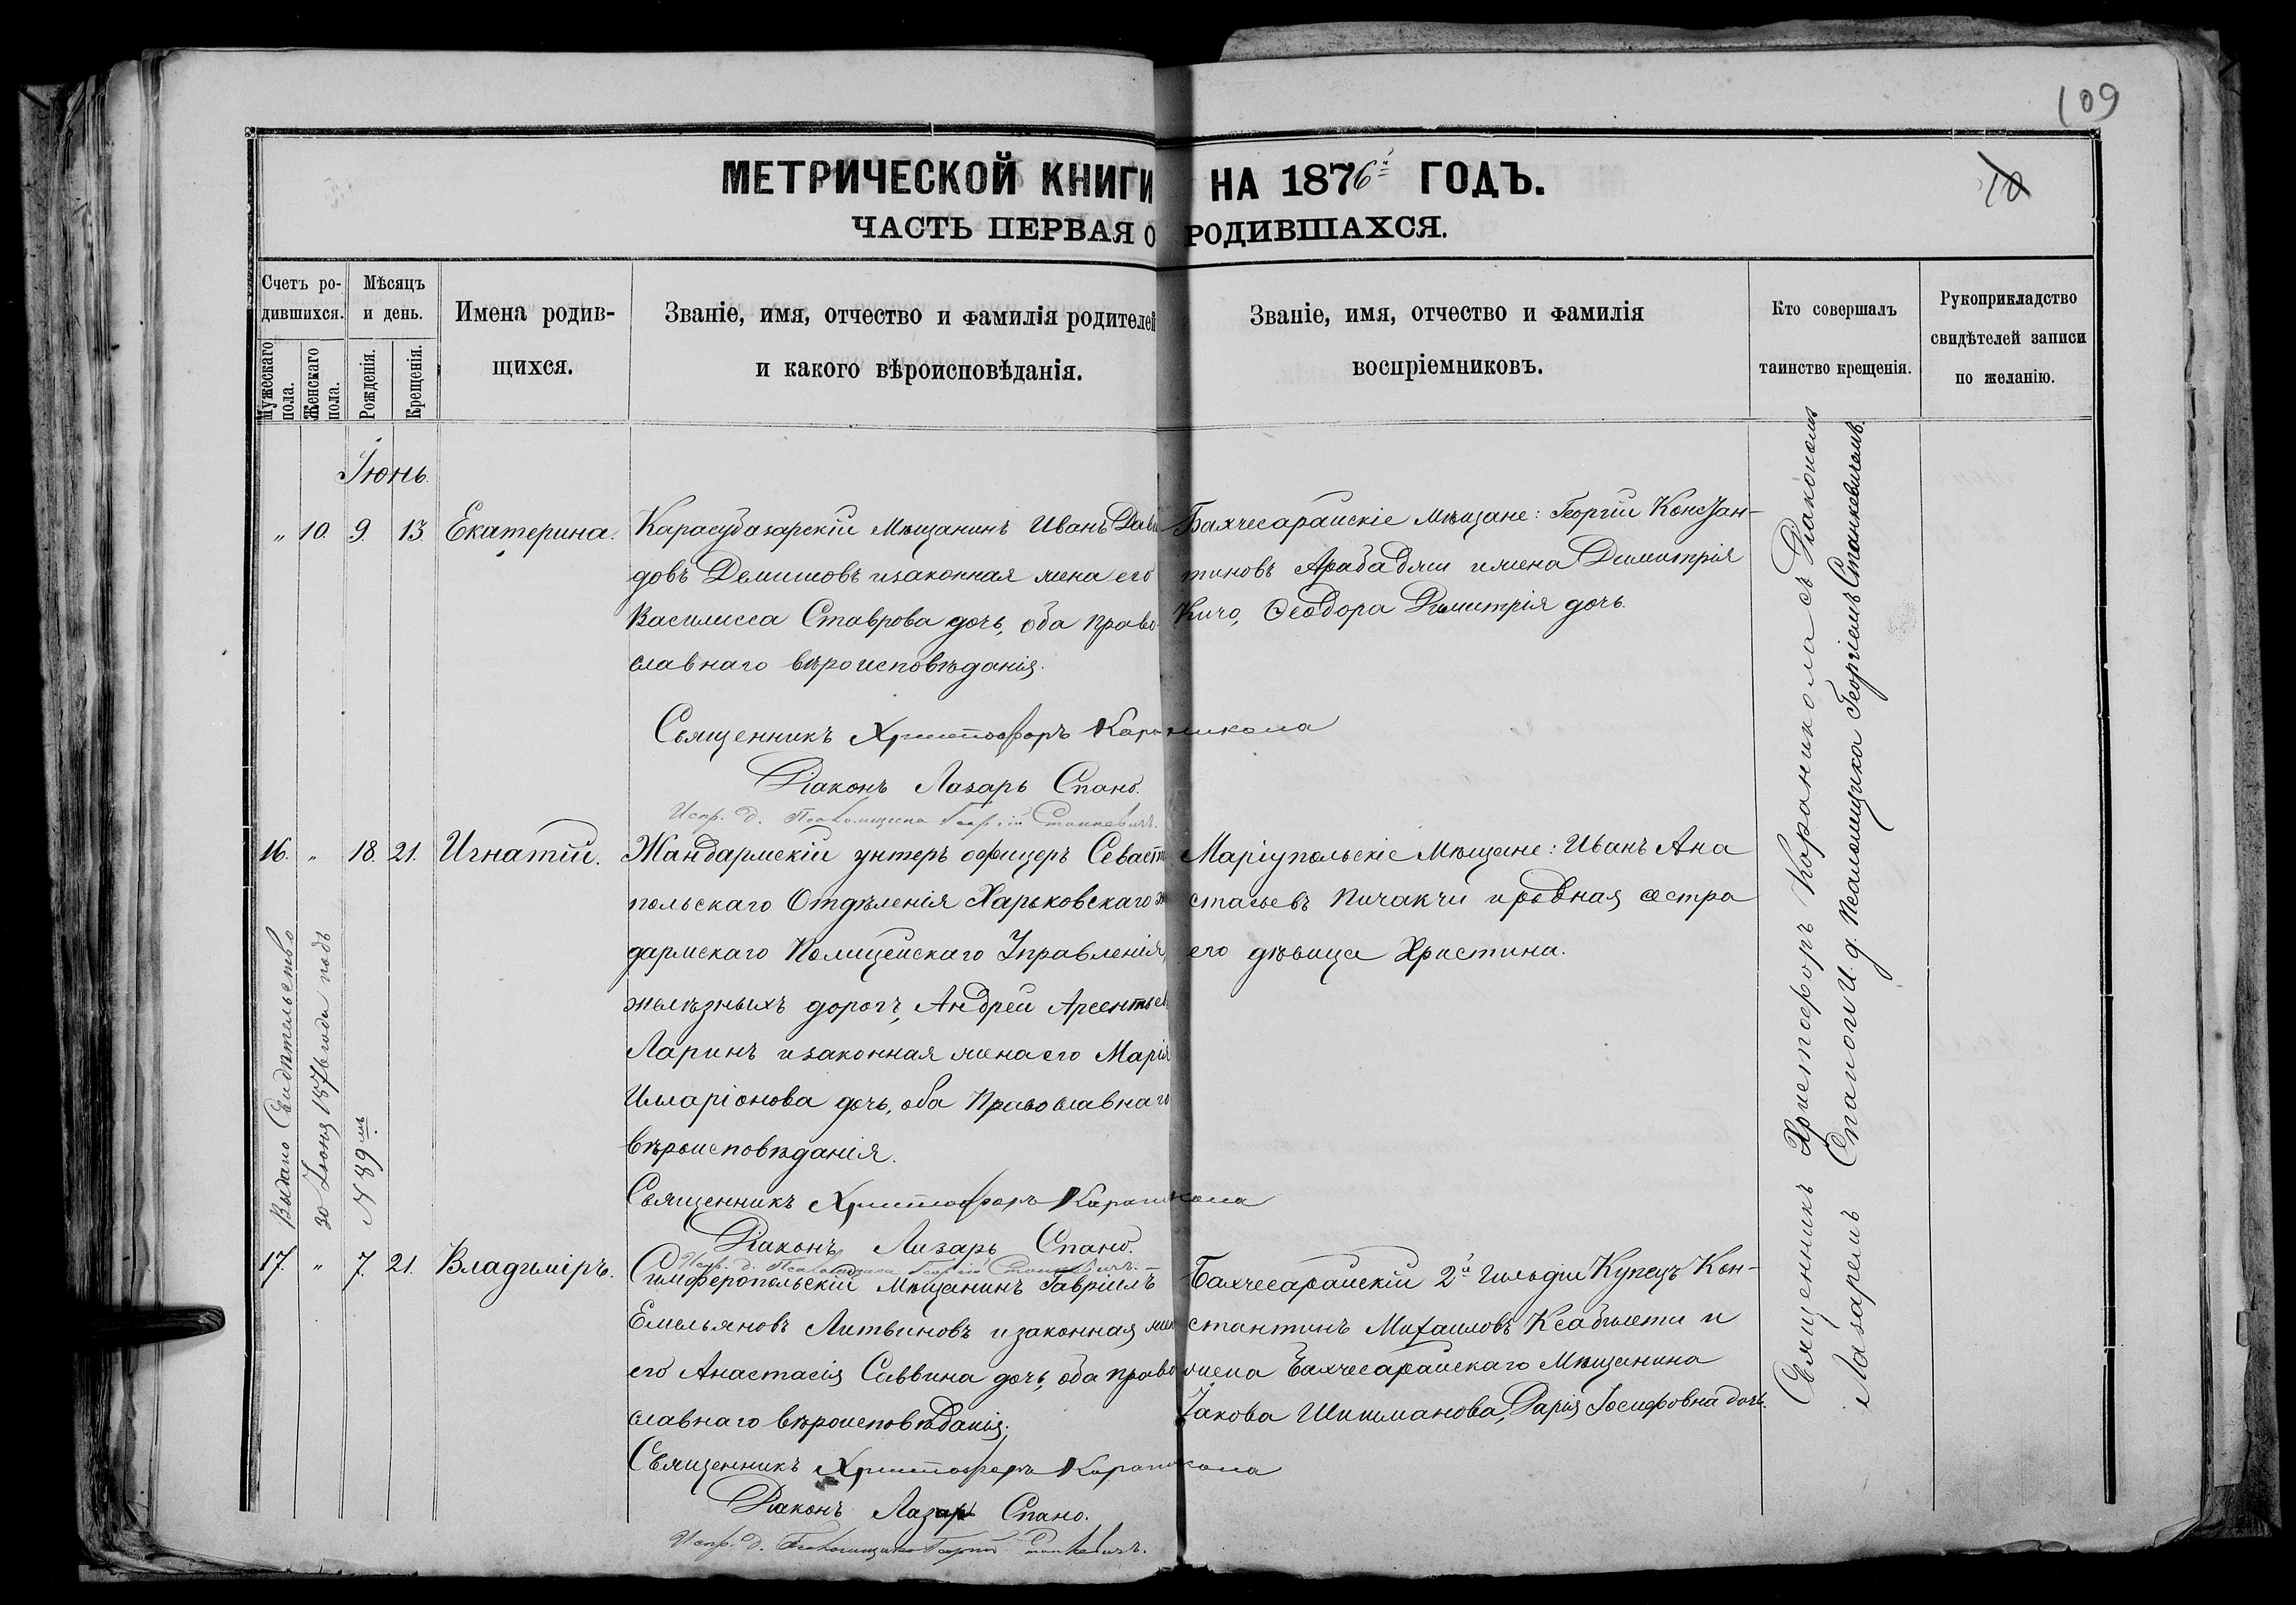 109
10
МЕТРИЧЕСКОЙ КНИГИ НА 1876й ГОДЪ.
ЧАСТЬ ПЕРВАЯ О РОДИВШАХСЯ.
Счетъ ро-
дившихся.
Мужескаго
пола.
Женскаго
пола.
Мѣсяцъ
и день.
Рожденія.
Крещенія.
Имена родив-
щихся.
Званіе, имя, отчество и фамилія родителей
и какого вѣроисповѣданія.
Званіе, имя, отчество и фамилія
воспріемниковъ.
Кто совершалъ
таинство крещенія.
Рукоприкладство
свидѣтелей записи
по желанію.
Іюнь.
„ 10. 9. 13. Екатерина.
Карасубазарскій Мѣщанинъ Иванъ Дави
довъ Демишовъ и законная жена его
Василисса Ставрова дочь, оба право-
славнаго вѣроисповѣданія.
Священникъ Христофоръ Караникола
Діаконъ Лазарь Спано.
Испр. д. Псаломщика Георгій Станкевичъ.
Бахчесарайскіе Мѣщане: Георгій Констан-
тиновъ Арабаджи и жена Димитрія
Кичо, Ѳеодора Димитрія дочь.
16. „ 18. 21. Игнатій.
Жандармскій унтеръ офицеръ Севасто
польскаго Отдѣленія Харьковскаго жа
дармскаго Полицейскаго Управленія,
желѣзныхъ дорогъ, Андрей Арсентьев
Ларинъ и законная жена его Марія
Илларіонова дочь, оба Православнаго
вѣроисповѣданія.
Священникъ Христофоръ Караникола
Діаконъ Лазарь Спано.
Испр. д. Псаломщика Георгій Станкевичъ.
Маріупольскіе Мѣщане: Иванъ Ана
стасьевъ Пичакчи и родная сестра
его дѣвица Христина.
Выдано Свидѣтельство
30 Іюня 1876 года подъ
№ 89мъ
17. „ 7. 21. Владиміръ.
Симферопольскій Мѣщанинъ Гавріилъ
Емельяновъ Литвиновъ и законная жен
его Анастасія Саввина дочь, оба право
славнаго вѣроисповѣданія;
Священникъ Христофоръ Караникола
Діаконъ Лазарь Спано.
Испр. д. Псаломщика Георгій Станкевичъ.
Бахчесарайскій 2й Гильдіи Купецъ Кон-
стантинъ Михаиловъ Ксабилети и
жена Бахчесарайскаго Мѣщанина
Іакова Шишманова, Дарія Іосифовна дочь.
Священникъ Христофоръ Караникола съ Діакономъ
Лазаремъ Спано и И. д. Псаломщика Георгіемъ Станкевичемъ.